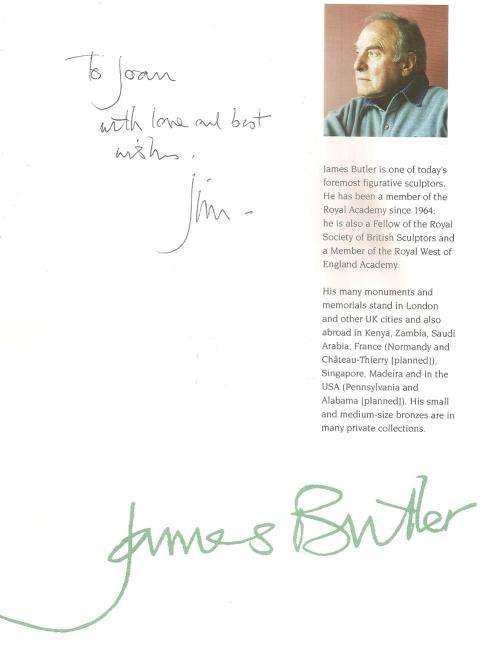 To Joan
with love and best
wishes.
Jim -
James Butler is one of today's
foremost figurative sculptors.
He has been a member of the
Royal Academy since 1964;
he is also a Fellow of the Royal
Society of British Sculptors and
a Member of the Royal West of
England Academy.
His many monuments and
memorials stand in London
and other UK cities and also
abroad in Kenya, Zambia, Saudi
Arabia, France (Normandy and
Château-Thierry [planned]),
Singapore, Madeira and in the
USA (Pennsylvania and
Alabama [planned]). His small
and medium-size bronzes are in
many private collections.
James Butler